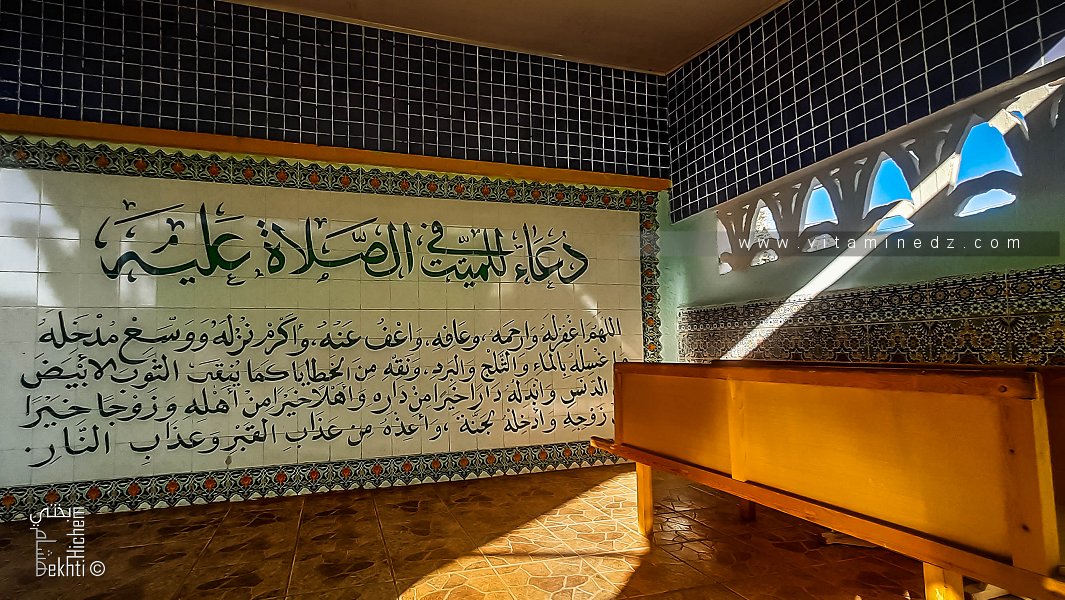 دُعَاءٌ لِلْمَيِّتِ فِي الصَّلَاةِ عَلَيْهِ
اللهُمَّ اغْفِرْ لَهُ وَارْحَمْهُ، وَعَافِهِ، وَاعْفُ عَنْهُ، وَأَكْرِمْ نُزُلَهُ وَوَسِّعْ مُدْخَلَهُ
بِالْمَاءِ وَالثَّلْجِ وَالْبَرَدِ، وَنَقِّهِ مِنَ الْخَطَايَا كَمَا يُنَقَّى الثَّوْبُ الْأَبْيَضُ
الدَّنَسِ وَأَبْدِلْهُ دَارًا خَيْرًا مِنْ دَارِهِ وَأَهْلًا خَيْرًا مِنْ أَهْلِهِ وَزَوْجًا خَيْرًا
زَوْجِهِ وَأَدْخِلْهُ الْجَنَّةَ، وَأَعِذْهُ مِنْ عَذَابِ الْقَبْرِ وَعَذَابِ النَّارِ.
www.vitaminedz.com
Hichem
Dekhti ©